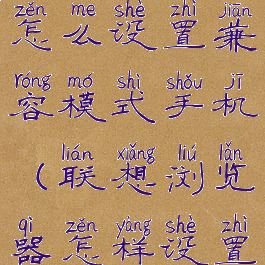 zěn me shè zhì jiān
怎么设置兼
róng mó shì shǒu jī
容模式手机
lián xiǎng liú lǎn
（联想浏览
qì zěn yàng shè zhì
器怎样设置